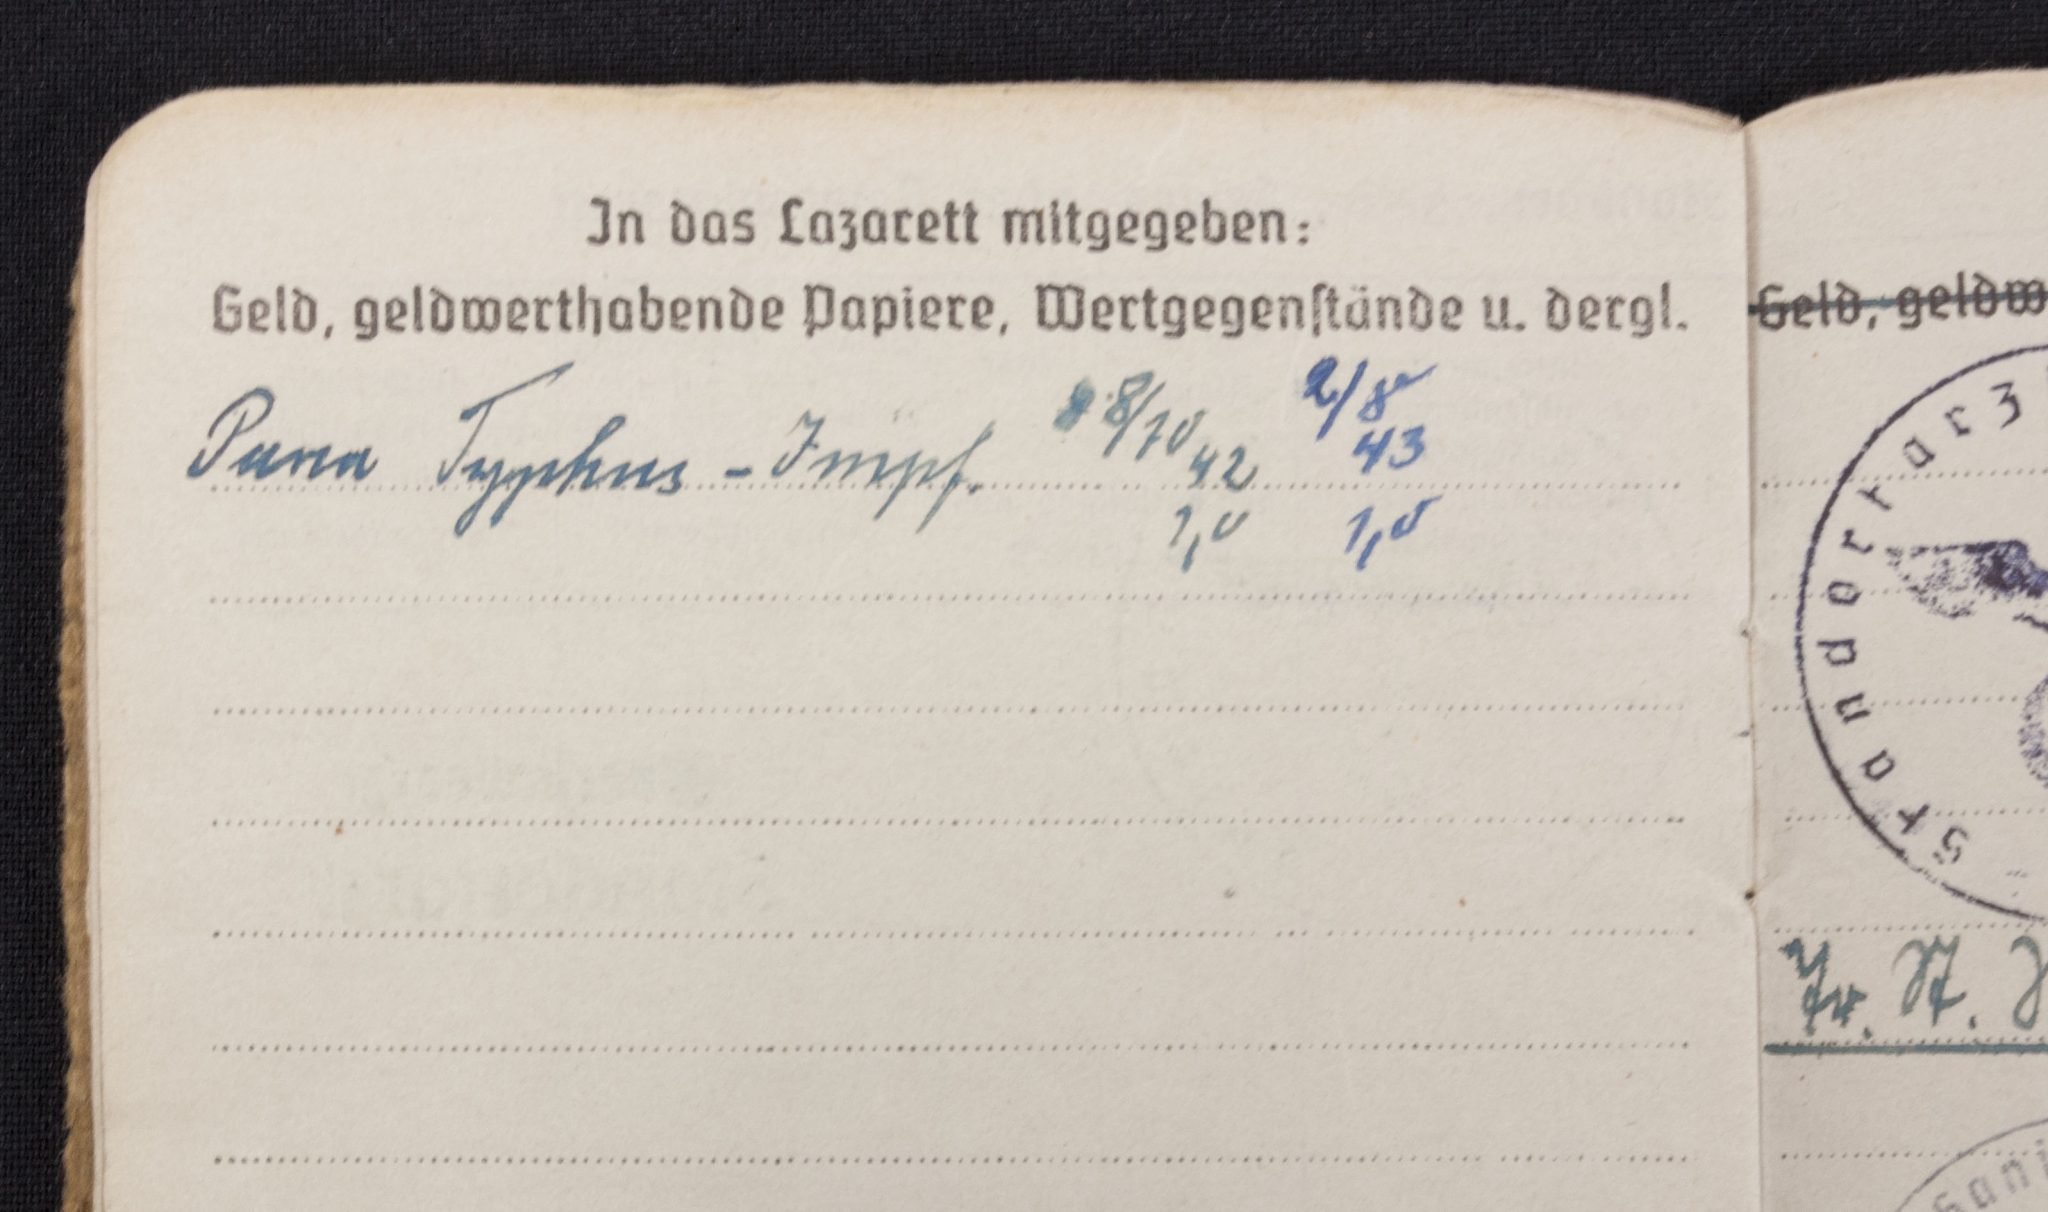 In das Lazarett mitgegeben:
Geld, geldwerthabende Papiere, Wertgegenstände u. dergl.
Para Typhus - Impf. 8/10 42 2/8 43
1,0 1,0
Geld, geldw
Standortarz
San